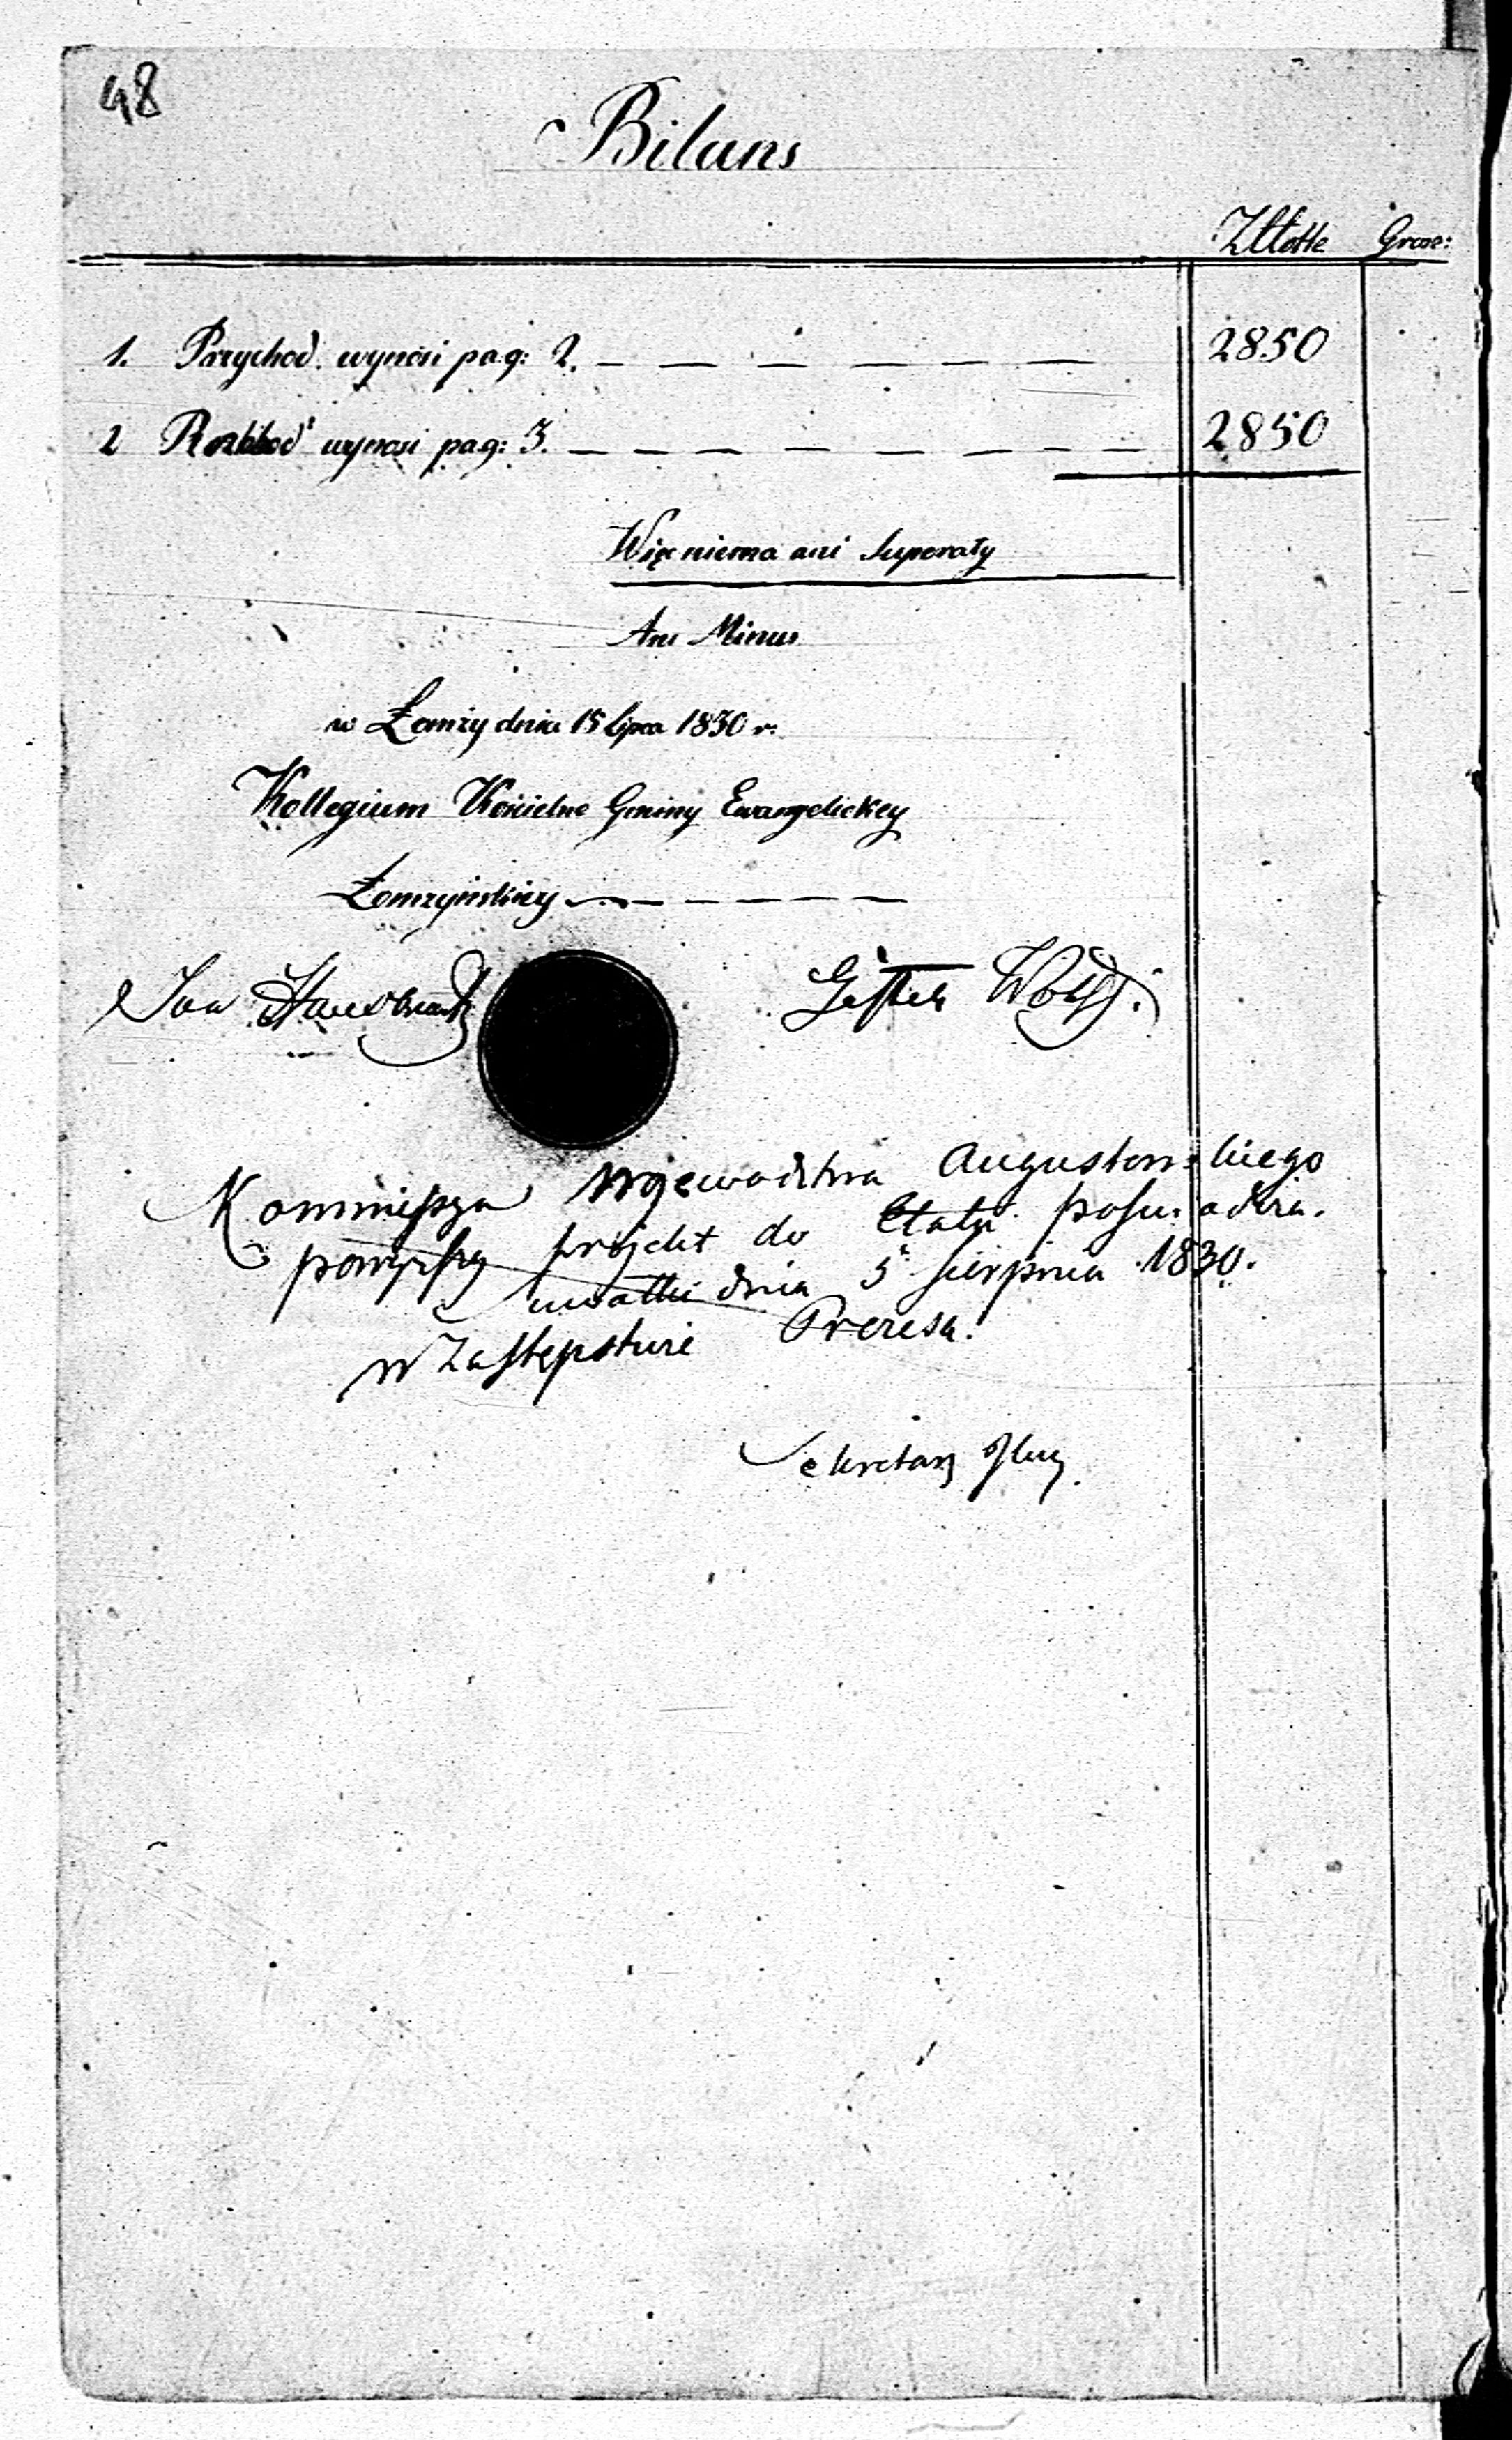 48
Bilans
Złotte Grosz:
1. Przychod wynosi pag: 2. — — — — — — 2850
2 Rozchod wynosi pag: 3. — — — — — — — — 2850
Więc niema ani Superaty
Ani Minus
w Łomży dnia 15 lipca 1830 r.
Kollegium Kościelne Gminy Ewangelickey
Łomżyńskiey — — — — —
Jan Wolff.
Kommissya Wojewodztwa Augustowskiego
powyższy projekt do Etatu poswiadcza.
Suwałki dnia 5 sierpnia 1830.
w Zastępstwie Prezesa.
Sekretarz Jlny.